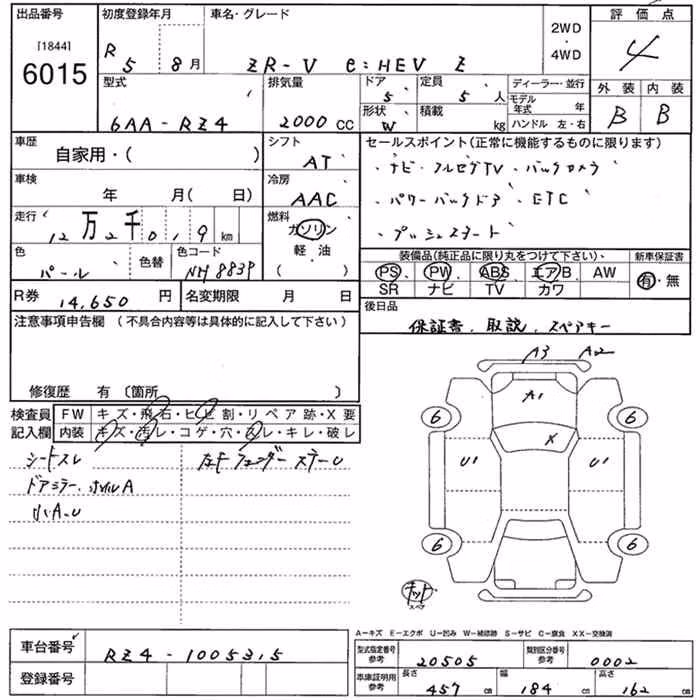 出品番号 初度登録年月 車名・グレード 2WD・4WD 評価点
[1844] 6015 R5 8月 ZR-V e:HEV Z 4
型式 排気量 ドア 定員 ディーラー・並行 外装 内装
6AA-RZ4 2000cc 5 5人 モデル年式 年 B B
形状 積載 ハンドル 左・右
W kg
車歴 シフト セールスポイント(正常に機能するものに限ります)
自家用・( ) AT ・ナビ・フルセグTV・バックカメラ
車検 冷房 ・パワーバックドア・ETC
年 月(日) AAC ・プッシュスタート
走行 燃料 装備品(純正品に限り丸をつけて下さい) 新車保証書
12万2千019km ガソリン PS PW ABS エアB AW 有・無
色 色替 色コード 軽・油 SR ナビ TV カワ
パール NH883P ( ) 後日品
R券 14,650円 名変期限 月 日 保証書、取説、スペアキー
注意事項申告欄(不具合内容等は具体的に記入して下さい)
修復歴 有〔箇所 〕
検査員 FW キズ・飛石・ヒビ割・リペア跡・X要
記入欄 内装 キズ・汚レ・コゲ・穴・スレ・キレ・破レ
シートスレ 左Fフェンダー
ドアミラー、ホイルA
小A・U
A3 A2
A1
6 X 6
U1 U1
6 6
スペア
A-キズ E-エクボ U-凹み W-補修跡 S-サビ C-腐食 XX-交換済
車台番号 RZ4-1005315 型式指定番号 参考 20505 類別区分番号 参考 0002
登録番号 車庫証明用 参考 長さ 457cm 幅 184cm 高さ 162cm